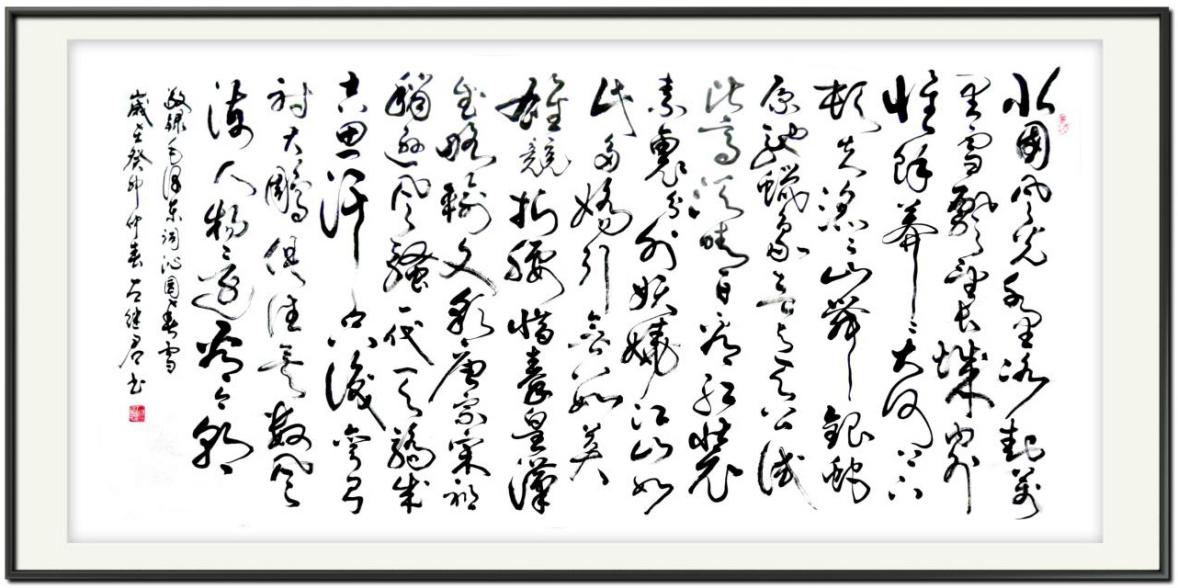 北國风光千里冰封萬
里雪飘望长城内外
惟餘莽〻大河上下
頓失滔〻山舞銀蛇
原馳蠟象欲与天公试
比高须晴日看红装
素裹分外妖娆江山如
此多娇引無数英
雄競折腰惜秦皇漢
武略输文彩唐宗宋祖
稍逊风骚一代天骄成
吉思汗只识弯弓
射大雕俱往矣数风
流人物还看今朝
敬録毛泽东词沁园春雪
歲在癸卯仲春石继君书